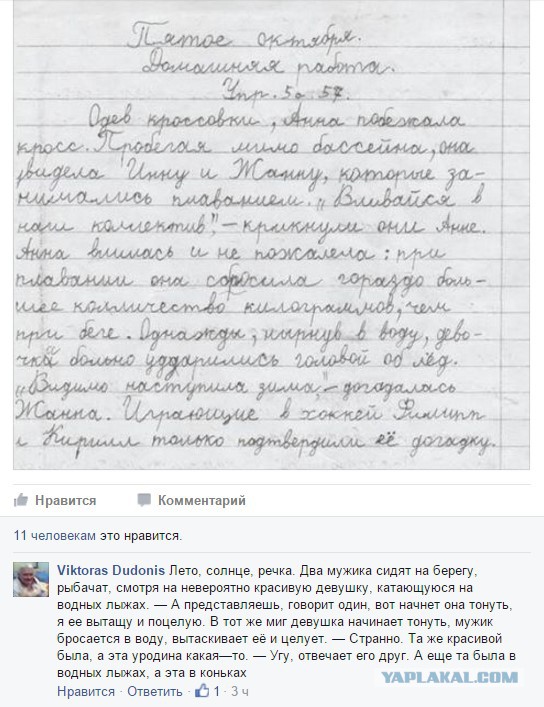 Пятое октября.
Домашняя работа.
Упр. 57.
Одев кроссовки, Анна побежала
кросс. Пробегая мимо бассейна, она
увидела Инну и Жанну, которые за-
нимались плаванием. „Вливайся в
наш коллектив", – крикнули они Анне.
Анна влилась и не пожалела: при
плавании она сбросила гораздо боль-
шее колличество килограммов, чем
при беге. Однажды, нырнув в воду, дево-
чки больно уддарились головой об лёд.
„Видимо наступила зима", – догадалась
Жанна. Играющие в хоккей Филипп
и Кирилл только подтвердили её догадку.
Нравится Комментарий
11 человекам это нравится.
Viktoras Dudonis Лето, солнце, речка. Два мужика сидят на берегу,
рыбачат, смотря на невероятно красивую девушку, катающуюся на
водных лыжах. — А представляешь, говорит один, вот начнет она тонуть,
я ее вытащу и поцелую. В тот же миг девушка начинает тонуть, мужик
бросается в воду, вытаскивает её и целует. — Странно. Та же красивой
была, а эта уродина какая—то. — Угу, отвечает его друг. А еще та была в
водных лыжах, а эта в коньках
Нравится · Ответить · 1 · 3 ч
YAPLAKAL.COM